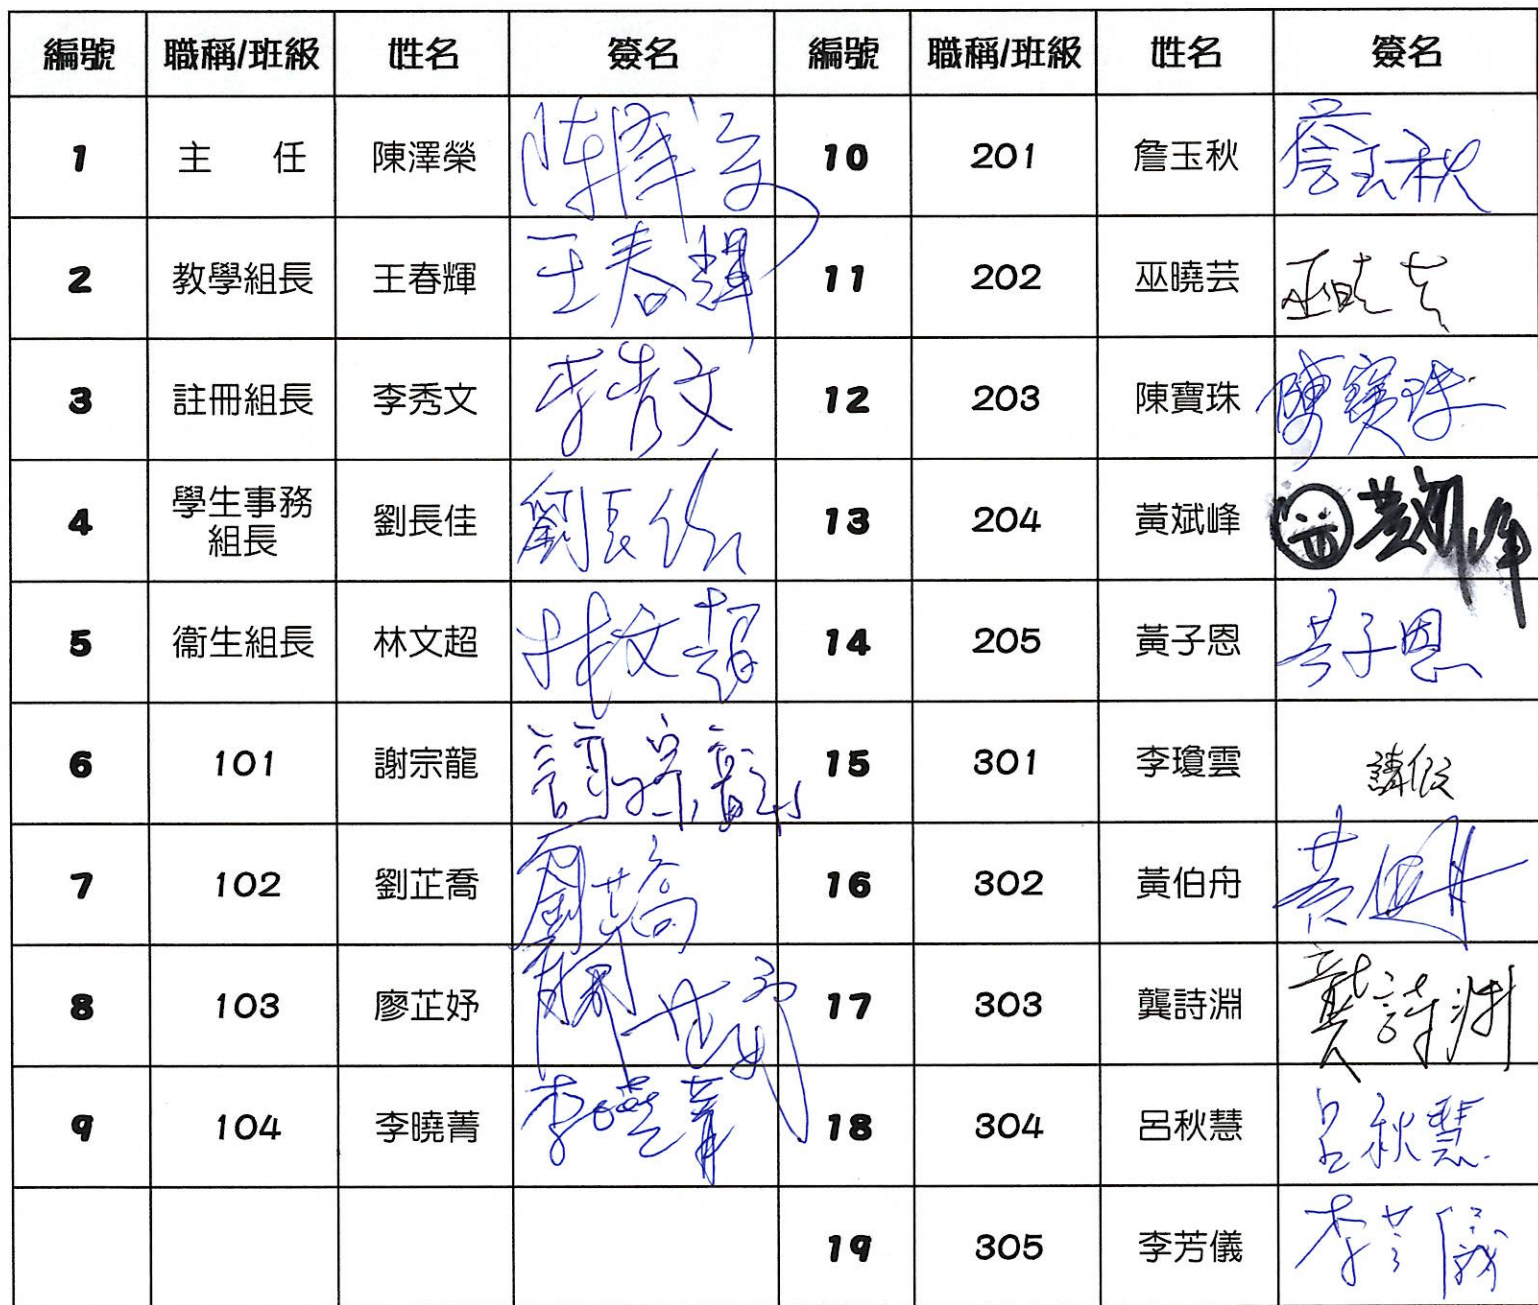 編號 職稱/班級 姓名 簽名 編號 職稱/班級 姓名 簽名
1 主 任 陳澤榮 陳澤榮 10 201 詹玉秋 詹玉秋
2 教學組長 王春輝 王春輝 11 202 巫曉芸 巫曉芸
3 註冊組長 李秀文 李秀文 12 203 陳寶珠 陳寶珠
4 學生事務
組長 劉長佳 劉長佳 13 204 黃斌峰 黃斌峰
5 衞生組長 林文超 林文超 14 205 黃子恩 黃子恩
6 101 謝宗龍 謝宗龍 15 301 李瓊雲 請假
7 102 劉芷喬 劉芷喬 16 302 黃伯舟 黃伯舟
8 103 廖芷妤 廖芷妤 17 303 龔詩淵 龔詩淵
9 104 李曉菁 李曉菁 18 304 呂秋慧 呂秋慧
19 305 李芳儀 李芳儀